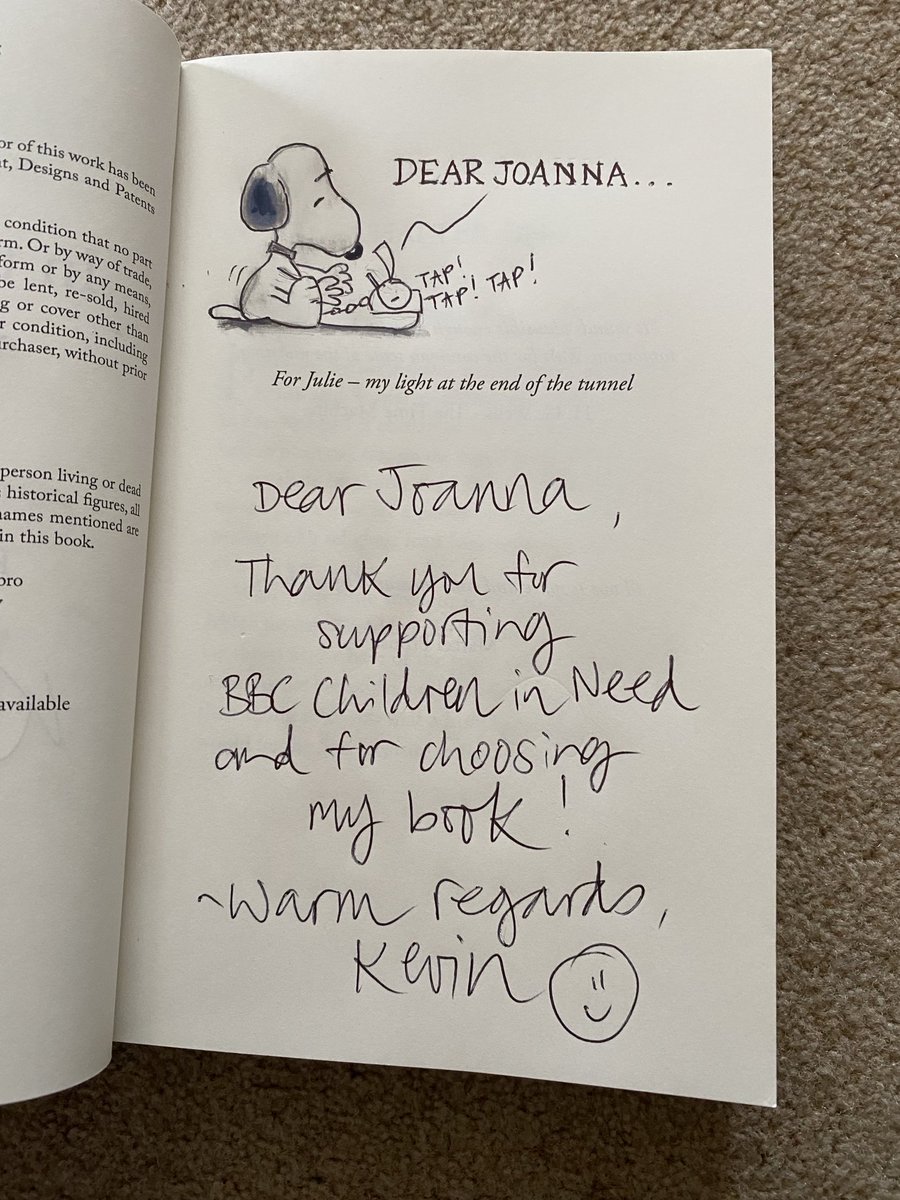 or of this work has been
t, Designs and Patents
condition that no part
rm. Or by way of trade,
form or by any means,
be lent, re-sold, hired
g or cover other than
r condition, including
urchaser, without prior
person living or dead
historical figures, all
names mentioned are
in this book.
oro
available
DEAR JOANNA...
TAP!
TAP! TAP!
For Julie – my light at the end of the tunnel
Dear Joanna,
Thank you for
supporting
BBC Children in Need
and for choosing
my book!
~Warm regards,
Kevin